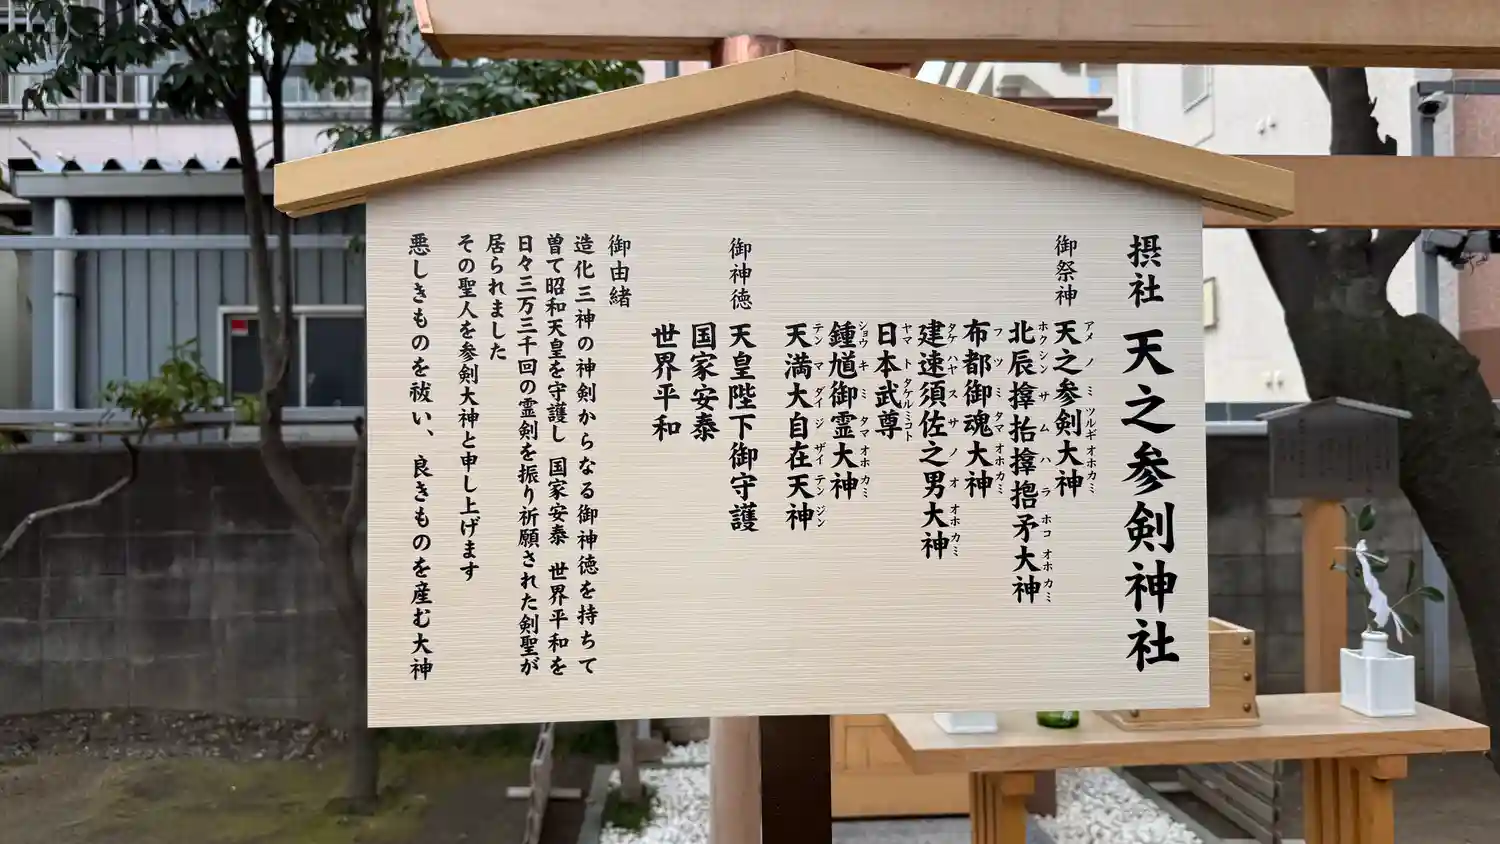 摂社 天之参剣神社
御祭神
天之参剣大神
アメノミツルギオホカミ
北辰撑抬撑㨟矛大神
ホクシンサムハラホコオホカミ
布都御魂大神
フツミタマオホカミ
建速須佐之男大神
タケハヤスサノオオホカミ
日本武尊
ヤマトタケルミコト
鍾馗御霊大神
ショウキミタマオホカミ
天満大自在天神
テンマダイジザイテンジン
御神徳
天皇陛下御守護
国家安泰
世界平和
御由緒
造化三神の神剣からなる御神徳を持ちて
曽て昭和天皇を守護し 国家安泰 世界平和を
日々三万三千回の霊剣を振り祈願された剣聖が
居られました
その聖人を参剣大神と申し上げます
悪しきものを祓い、良きものを産む大神